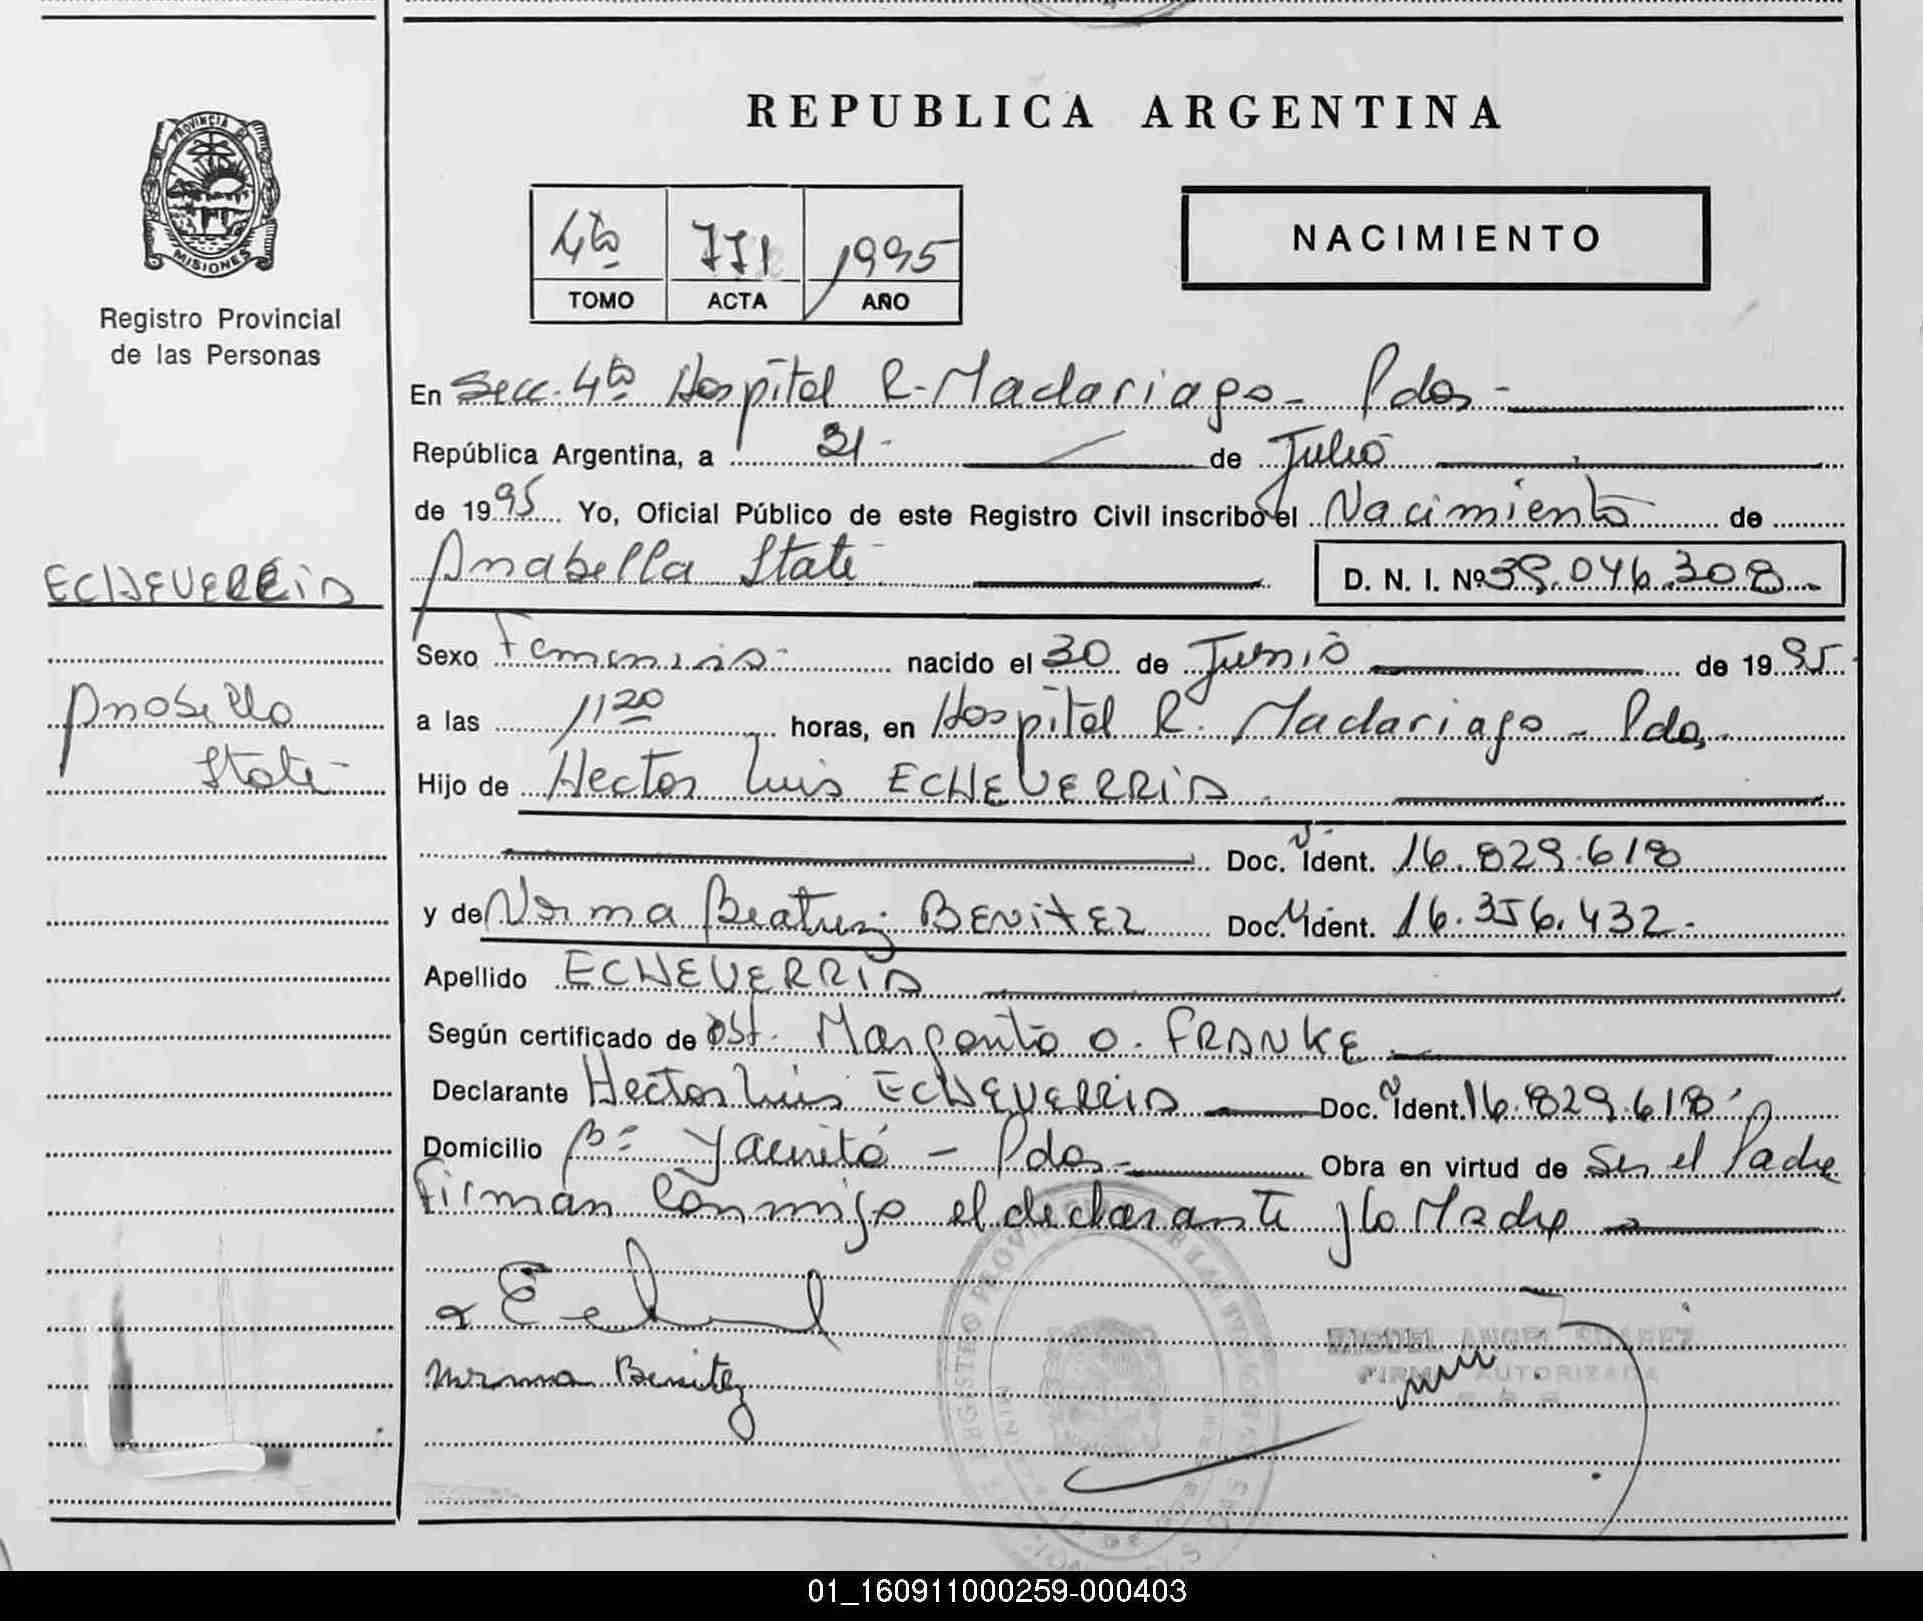 PROVINCIA DE
MISIONES
Registro Provincial
de las Personas
ECHEVERRIA
Anabella
State
REPUBLICA ARGENTINA
4to 771 1995
TOMO ACTA AÑO
NACIMIENTO
En Secc. 4ta Hospital R. Madariaga - Pdas -
República Argentina, a 31 - de Julio
de 1995 Yo, Oficial Público de este Registro Civil inscribo el Nacimiento de
Anabella State D. N. I. Nº 39.046.308
Sexo Femenino nacido el 30 de Junio de 1995
a las 11 20 horas, en Hospital R. Madariaga - Pdas
Hijo de Hector Luis ECHEVERRIA
Doc. Ident. 16.829.618
y de Norma Beatriz BENITEZ Doc. Ident. 16.356.432.-
Apellido ECHEVERRIA
Según certificado de Obst. Margarita O. FRANKE
Declarante Hector Luis ECHEVERRIA Doc. Ident. 16.829.618
Domicilio Bº Yacyretá - Pdas - Obra en virtud de Ser el Padre
Firman Conmigo el declarante y la Madre
MIGUEL ANGEL SUAREZ
FIRMA AUTORIZADA
Norma Benitez
REGISTRO PROVINCIAL
01_160911000259-000403